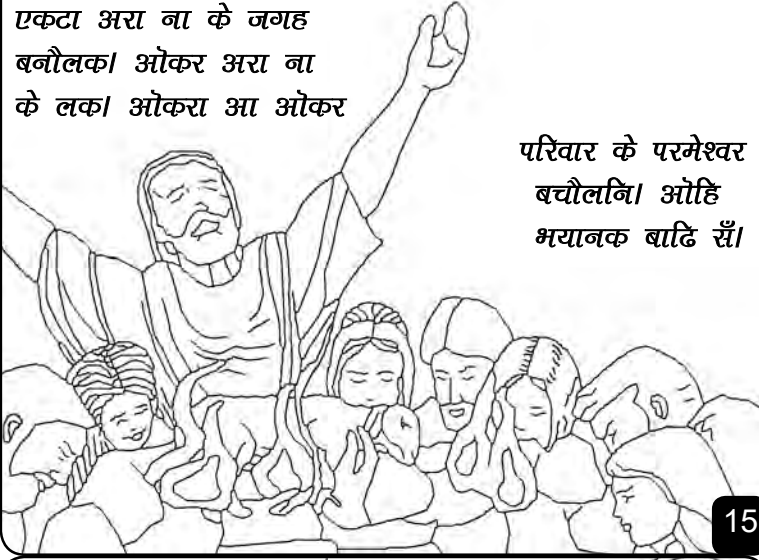 एकटा अरा ना के जगह
बनौलक। ऒकर अरा ना
के लक। ऒकरा आ ऒकर
परिवार के परमेश्वर
बचौलनि। ऒहि
भयानक बाढि सँ।
15